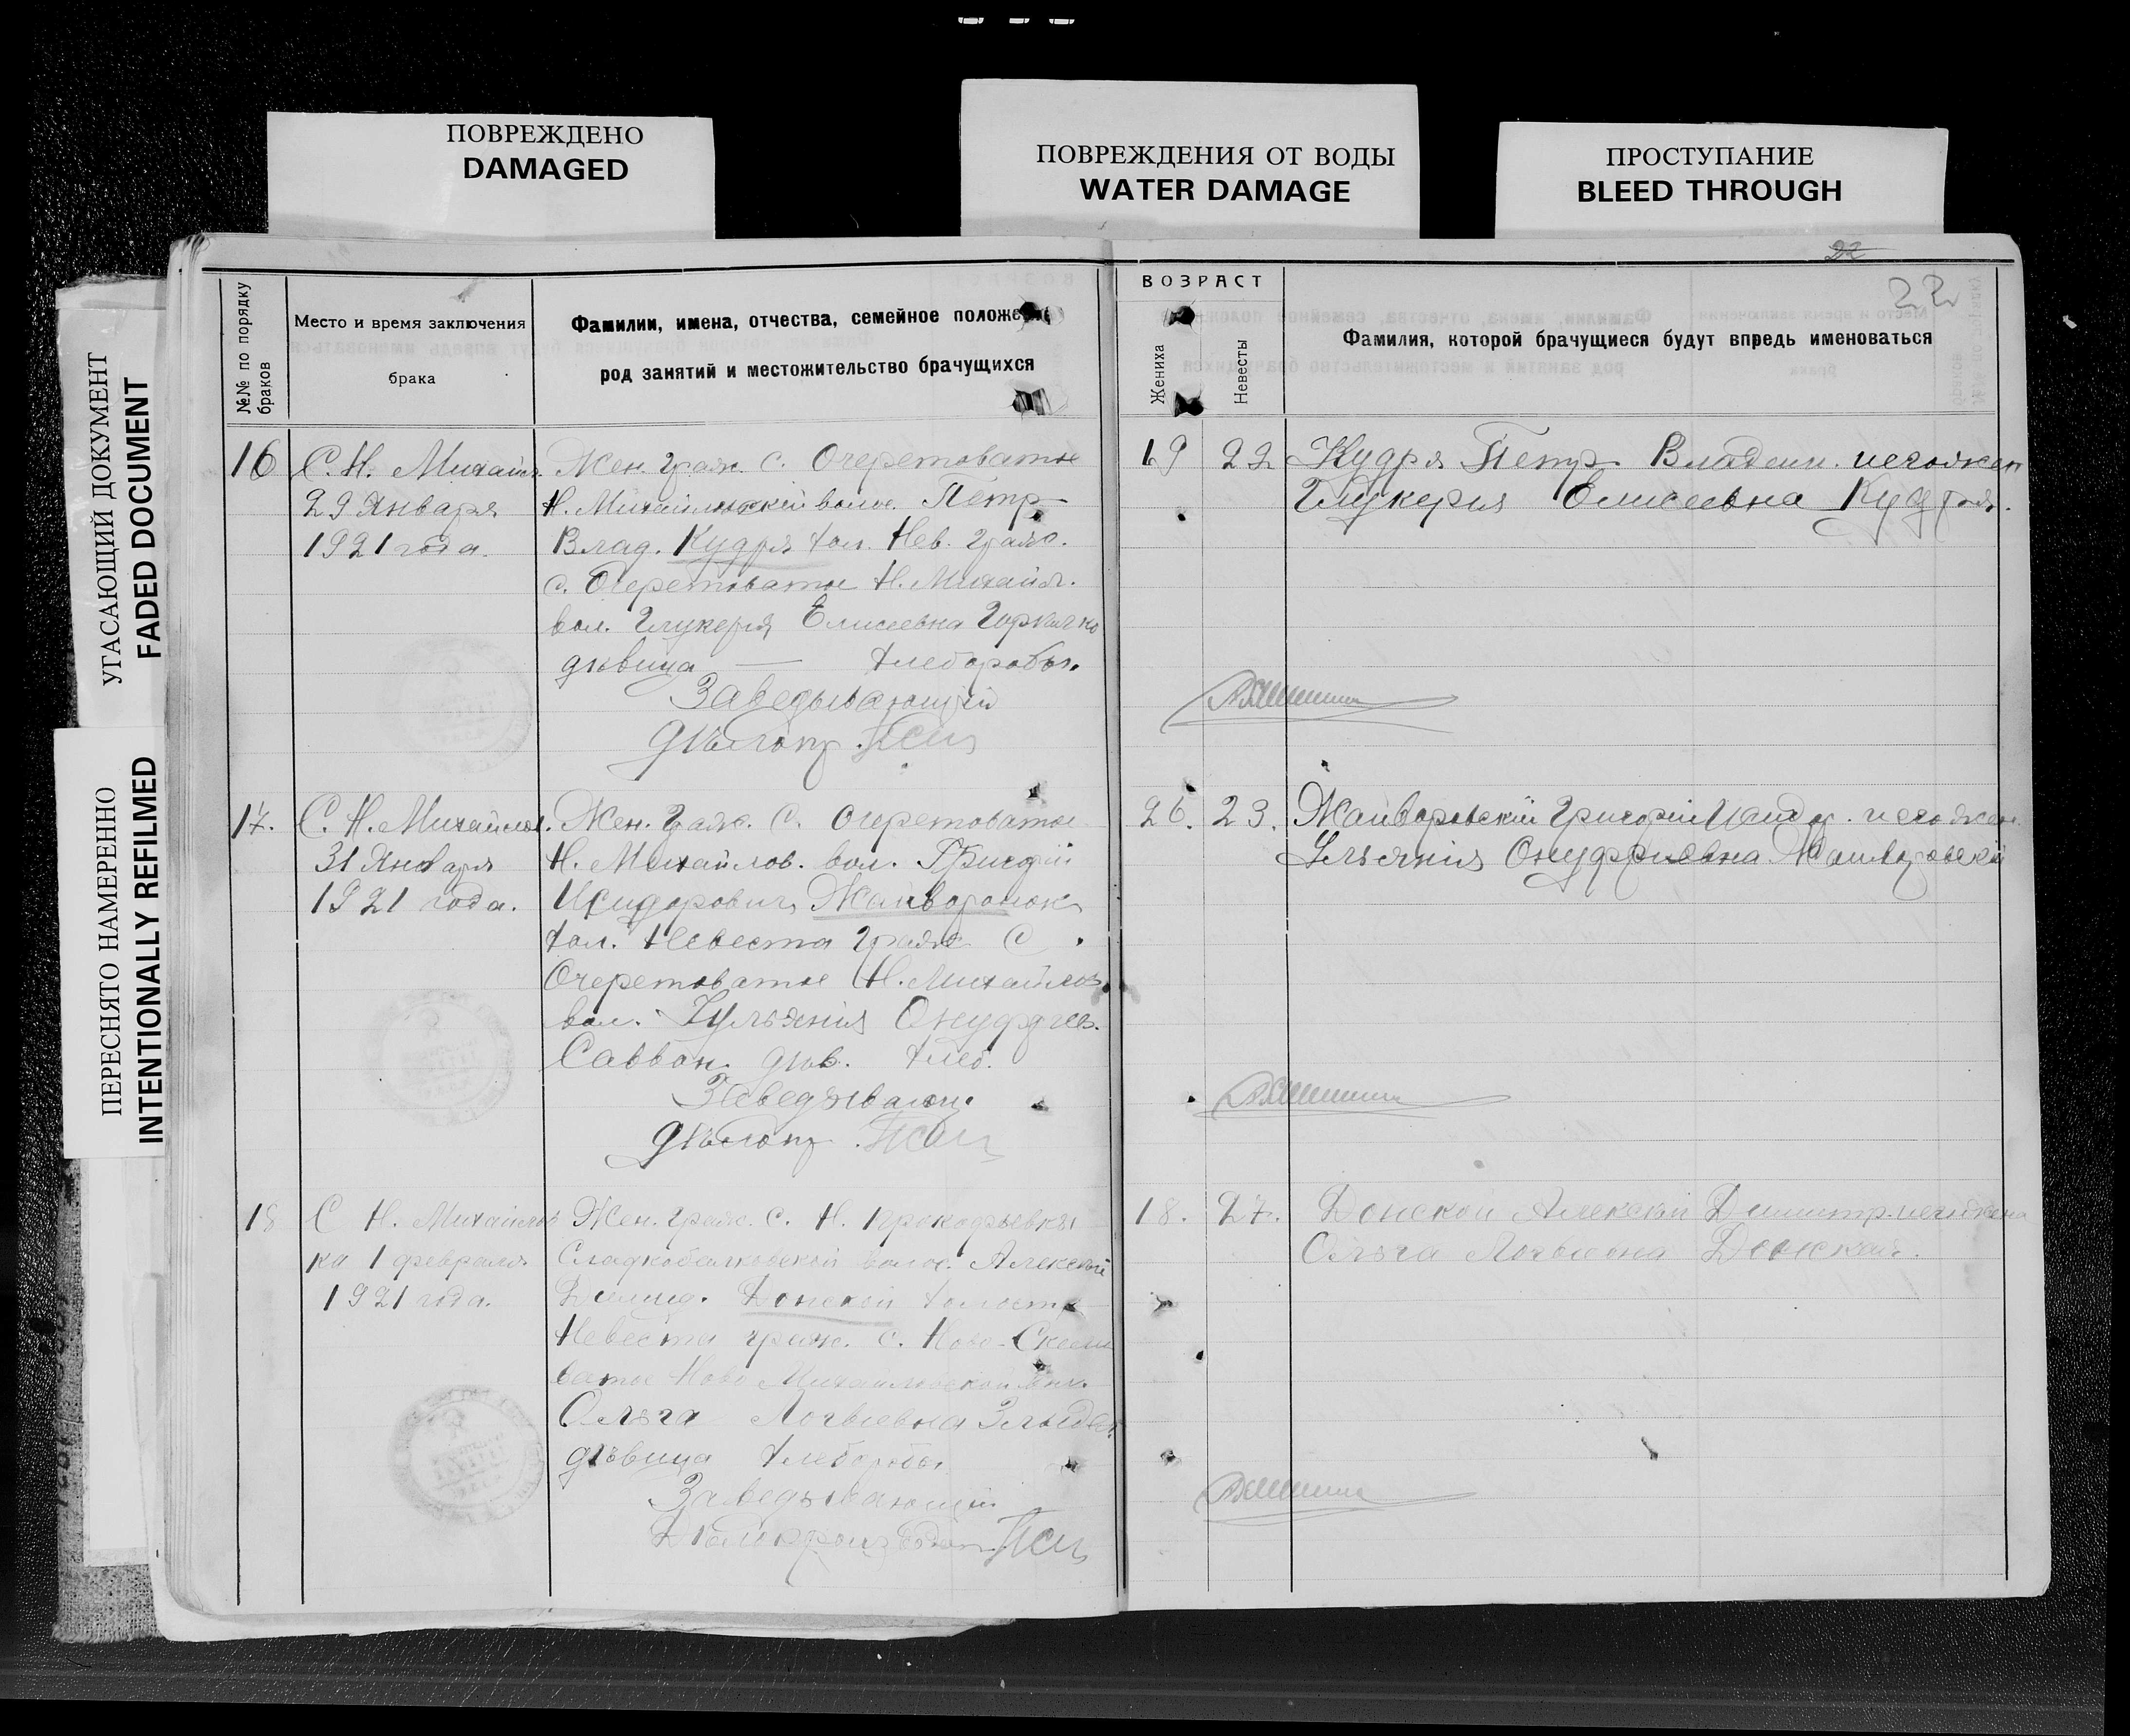 ПОВРЕЖДЕНО
DAMAGED
ПОВРЕЖДЕНИЯ ОТ ВОДЫ
WATER DAMAGE
ПРОСТУПАНИЕ
BLEED THROUGH
УГАСАЮЩИЙ ДОКУМЕНТ
FADED DOCUMENT
ПЕРЕСНЯТО НАМЕРЕННО
INTENTIONALLY REFILMED
№№ по порядку
браков
Место и время заключения
брака
Фамилии, имена, отчества, семейное положе
род занятий и местожительство брачущихся
22
22
ВОЗРАСТ
Жениха
Невесты
Фамилия, которой брачущиеся будут впредь именоваться
16
С. Н. Михайл.
29 Января
1921 года.
Жен. граж. С. Очеретоватое
Н. Михайловской волос. Петр
Влад. Кудря хол. Нев. граж.
с. Очеретоватое Н. Михайл.
вол. Глукерия Елисеевна
дѣвица — хлеборобы.
Заведывающий
дѣлопр.
19
22
Кудря Петр Владим. и его жен
Глукерия Елисеевна Кудря.
17.
С. Н. Михайлов.
31 Января
1921 года.
Жен. граж. С. Очеретоватое
Н. Михайлов. вол. Григорій
Исидорович Жайворонок
хол. Невеста граж. С
Очеретоватое Н. Михайлов.
вол. Ульяния Онуфриев.
Саввон. дѣв. хлеб.
Заведывающ.
дѣлопр.
26.
23.
Григорій Исидор. и его жен.
Ульяния Онуфриевна
18
С Н. Михайлов
ка 1 февраля
1921 года.
Жен. граж. с. Н. Прокофьевка
Сладкобалковской волос. Алексей
Донской холост
Невеста граж. с. Ново-Скели
ватое Ново Михайловской вол.
Ольга Логвиевна
дѣвица хлеборобы
Заведывающий
Дѣлопроизводит.
18.
27.
Донской Алексей Димитр. и его жена
Ольга Логвиевна Донская.